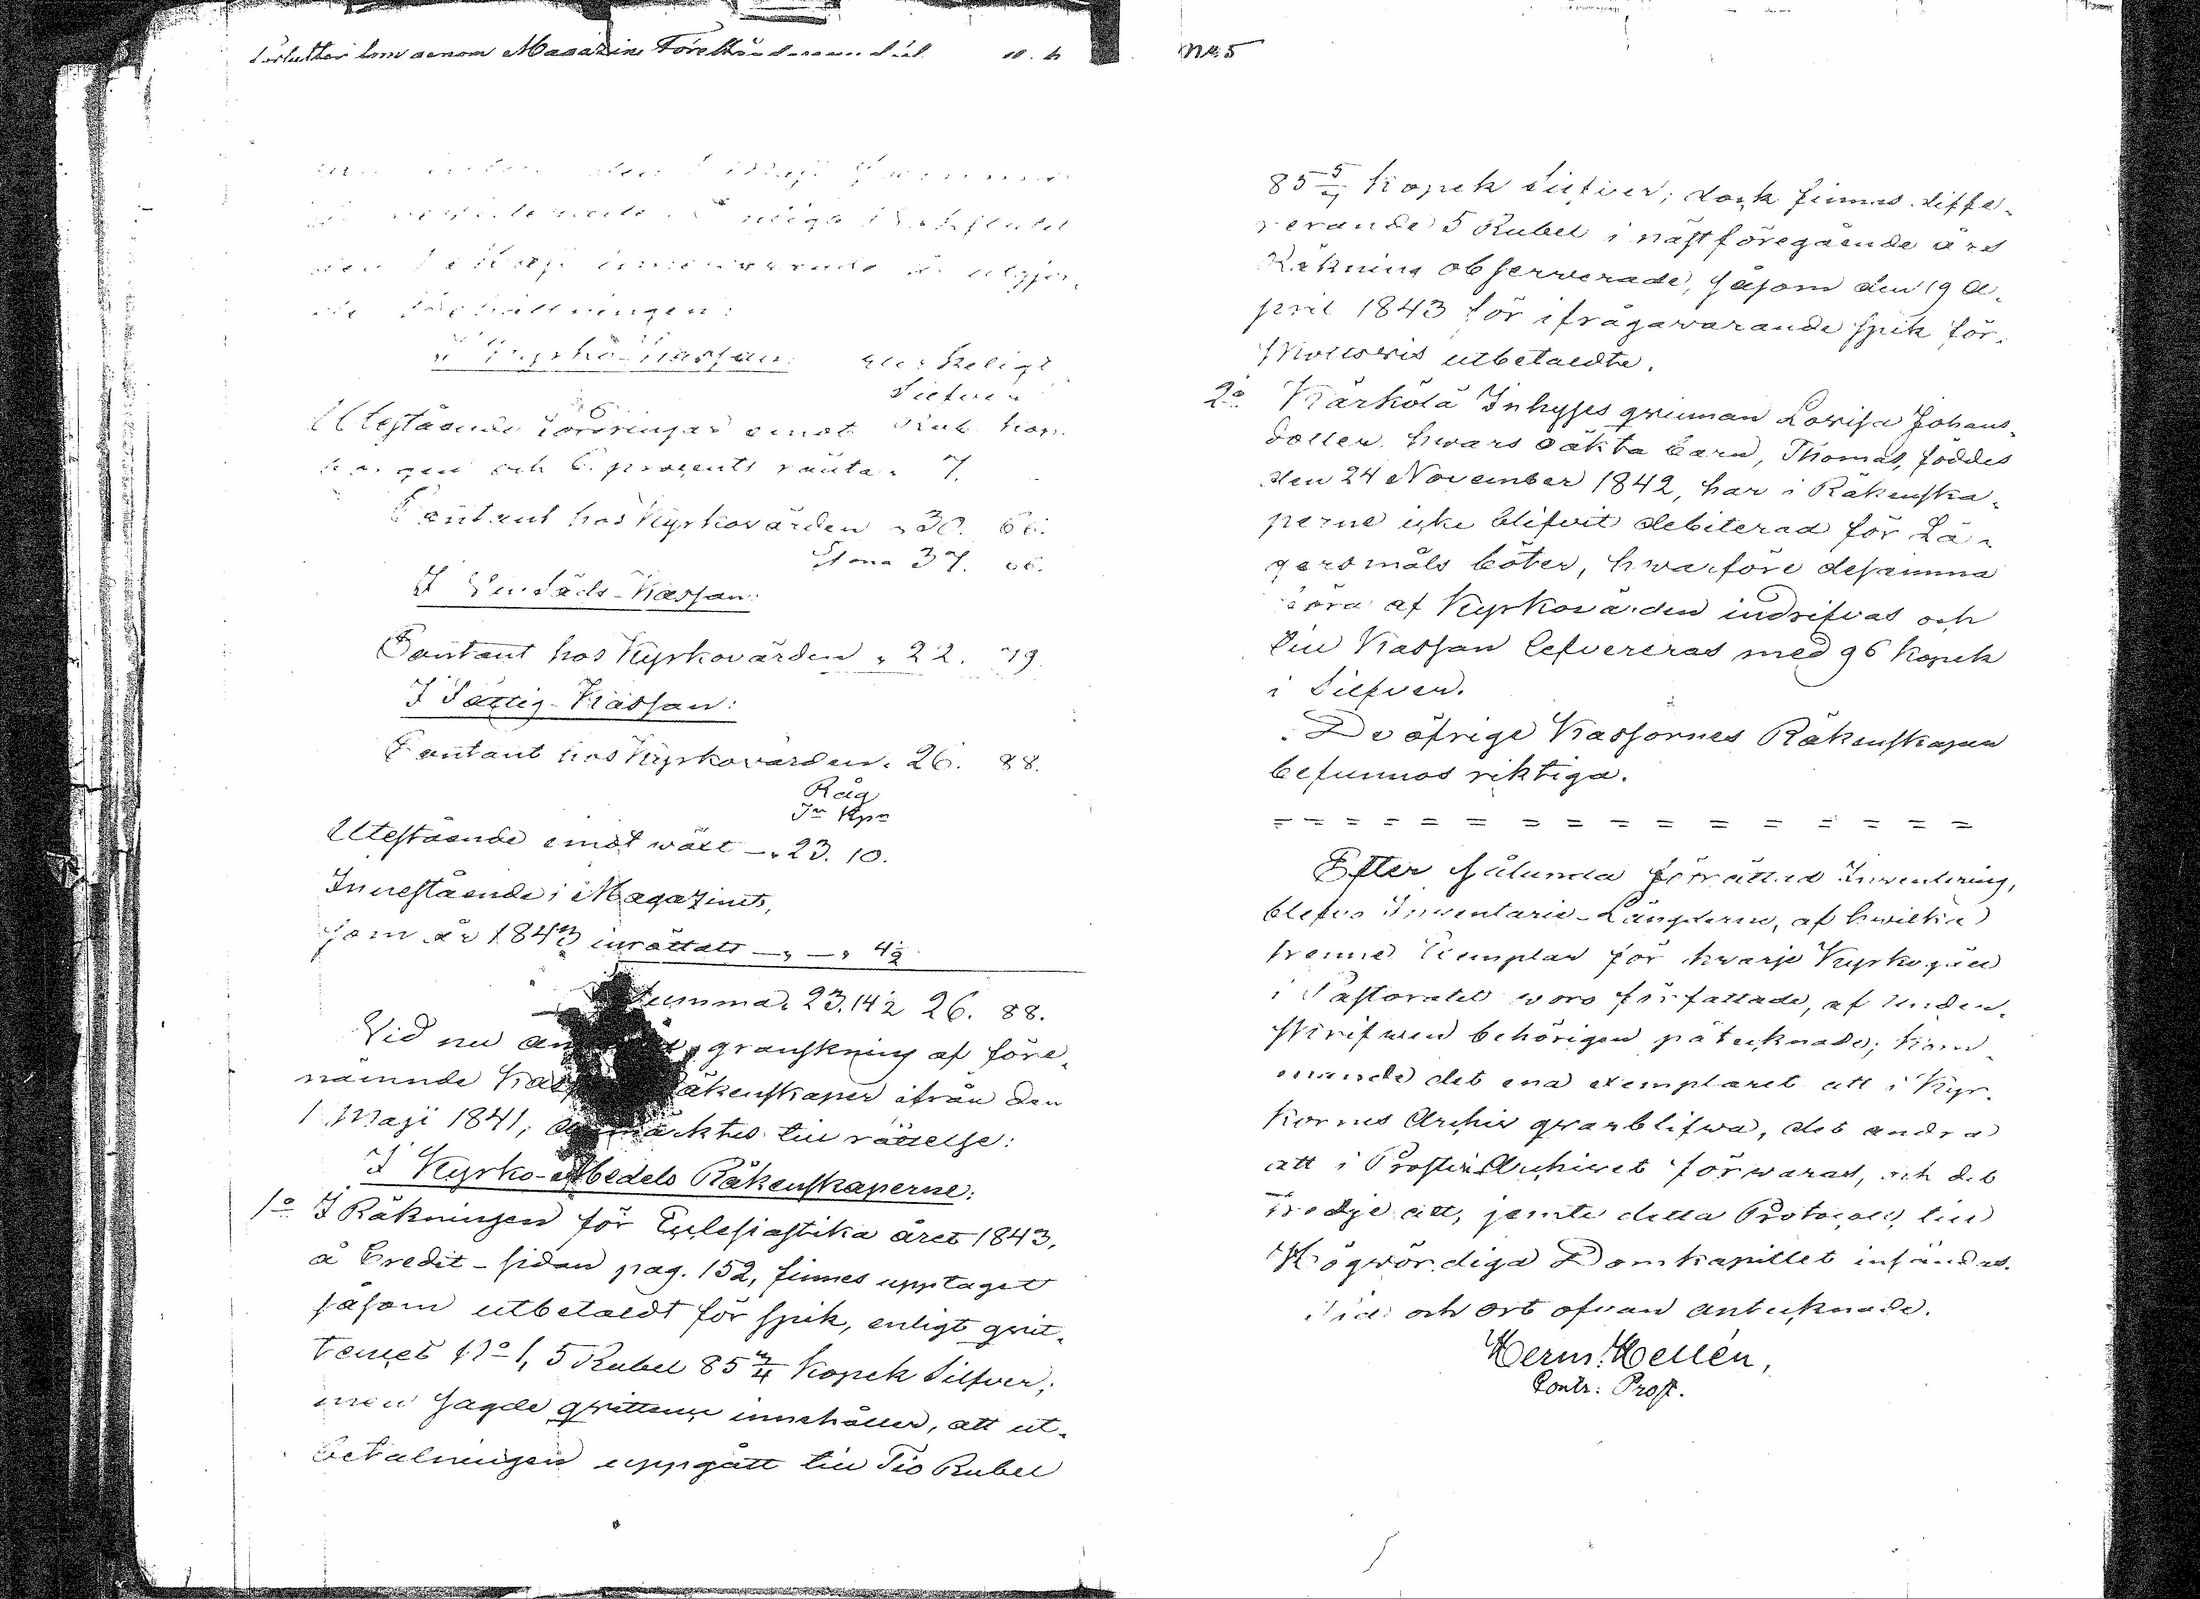 genom Magazins Föreståndare
N:o 5
den 1 Maji
enligt Bokslutet
den 1 Maji innevarande år utgjor-
de Behållningen:
I Kyrko-Kassan:
Silfver
Utestående Fordringar emot Rub. Kop.
borgen och 6. procents ränta „ 7. -
Contant hos Kyrkovärden „ 30. 66.
Sma 37. 66.
I Lius&Säds-Kassan:
Contant hos Kyrkovärden „ 22. 79
I Fattig-Kassan:
Contant hos Kyrkovärden „ 26. 88.
Råg
Tr Kpr
Utestående emot wäxt — „ 23. 10.
Innestående i Magazinet,
som år 1843 inrättats — „ — „ 4½
Summa „ 23. 14½ 26. 88.
Vid nu granskning af före-
nämnde Räkenskaper ifrån den
1 Maji 1841, anmärktes till rättelse:
I Kyrko-Medels Räkenskaperne:
1o I Räkningen för Ecclesiastika året 1843,
å Credit-sidan pag. 152, finnes upptaget
såsom utbetaldt för spik, enligt qvit-
tencet No 1, 5 Rubel 85 5/7 Kopek Silfver;
men sagde qvittence innehåller, att ut-
betalningen uppgått till Tio Rubel
85 5/7 Kopek Silfver; dock finnas diffe-
rerande 5 Rubel i nästföregående års
Räkning observerade, såsom den 19 A-
pril 1843 för ifrågavarande spik för-
skottsvis utbetaldte.
2o Kärkölä Inhyses qvinnan Lovisa Johans-
dotter, hwars oäkta barn, Thomas, föddes
den 24 November 1842, har i Räkenska-
perne icke blifvit debiterad för Lä-
gersmåls böter, hwarföre desamma
böra af Kyrkovärden indrifvas och
till Kassan lefvereras med 96 Kopek
i Silfver.
De öfrige Kassornes Räkenskaper
befunnos riktiga.
= = = = = = = = = = = = = = =
Efter sålunda förrättad Inventering,
blefvo Inventarie-Längderne, af hwilka
trenne Exemplar för hwarje Kyrkogäll
i Pastoratet woro författade, af Under-
skrifwen behörigen påtecknade; kom-
mande det ena exemplaret att i Kyr-
kornes Archiv qvarblifwa, det andra
att i Prosteri Archivet förwaras, och det
tredje att, jemte detta Protocoll, till
Högwördiga Domkapitlet insändas.
Tid och ort ofvan antecknade.
Herm: Hellén,
Contr: Prost.